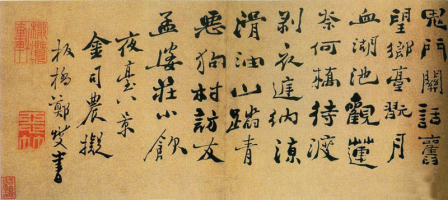 鬼門關話舊
望鄉臺翫月
血湖池觀蓮
奈何橋待渡
剥衣庭納凉
滑油山踏青
惡狗村訪友
孟婆莊小飲
夜臺八景
金司農擬
板橋鄭燮書